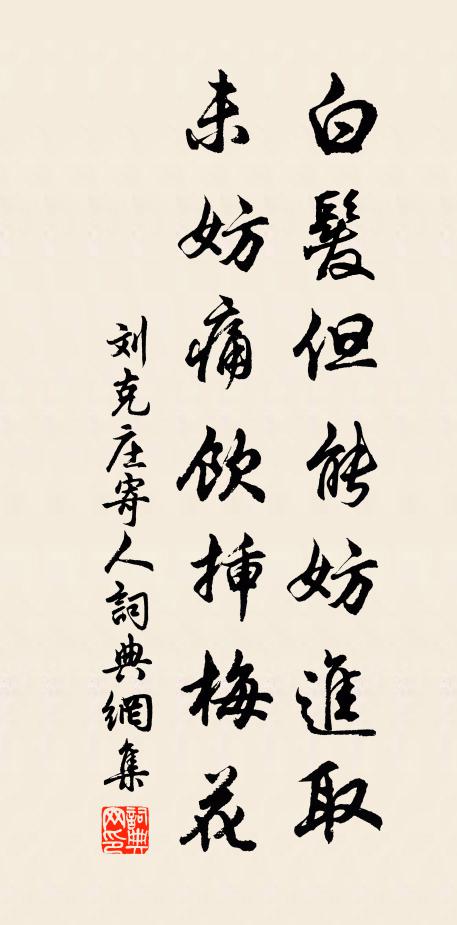 白髮但能妨進取
未妨痛飲插梅花
刘克庄寄人詞典網集
詞典网印